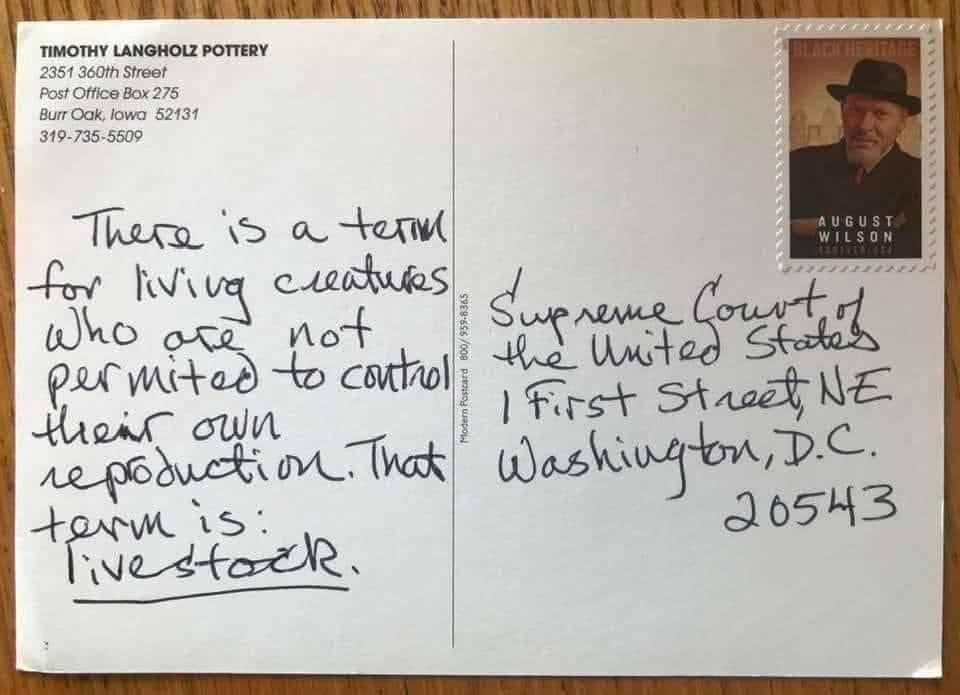 TIMOTHY LANGHOLZ POTTERY
2351 360th Street
Post Office Box 275
Burr Oak, Iowa 52131
319-735-5509
There is a term
for living creatures
who are not
permited to control
their own
reproduction. That
term is:
livestock.
Modern Postcard 800/959-8365
BLACK HERITAGE
AUGUST
WILSON
FOREVER USA
Supreme Court of
the United States
1 First Street, NE
Washington, D.C.
20543